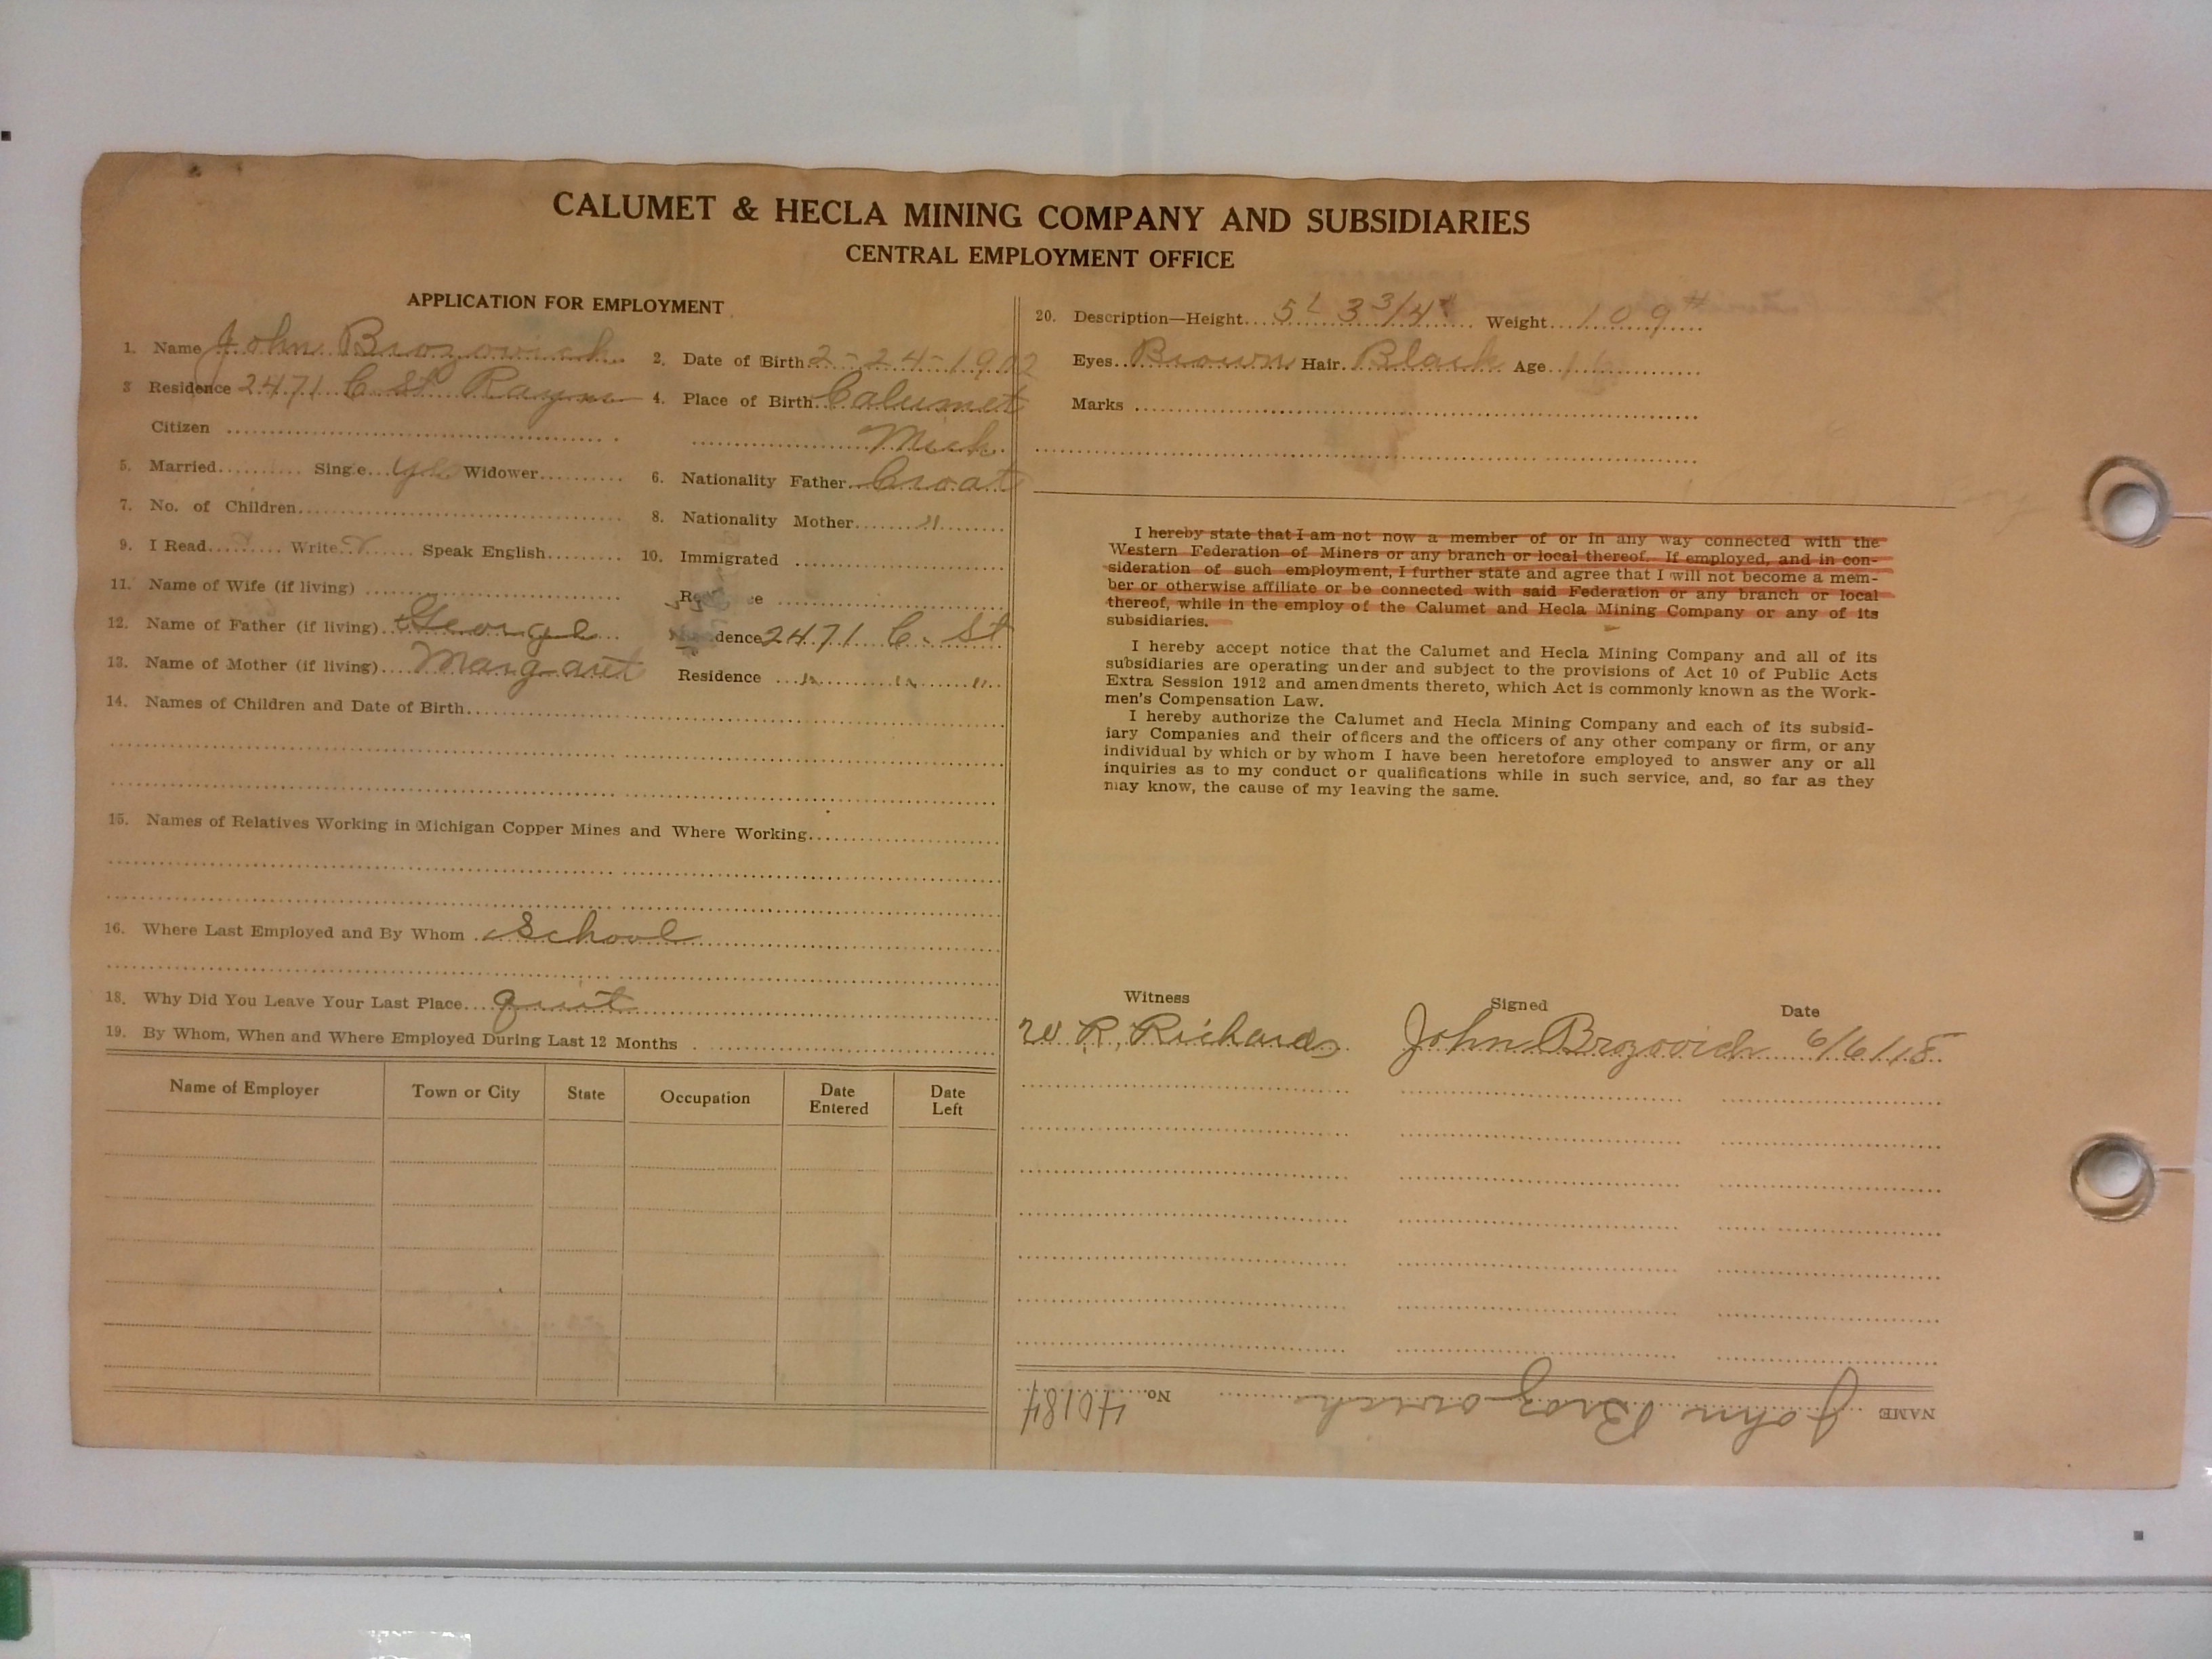 CALUMET & HECLA MINING COMPANY AND SUBSIDIARIES
CENTRAL EMPLOYMENT OFFICE
APPLICATION FOR EMPLOYMENT
1. Name John Brozowich 2. Date of Birth 2-24-1902
3 Residence 2471 C St Raym 4. Place of Birth Calumet
Citizen Mich
5. Married Single Yes Widower 6. Nationality Father Croat
7. No. of Children 8. Nationality Mother "
9. I Read Write Speak English 10. Immigrated
11. Name of Wife (if living)
12. Name of Father (if living) George dence 2471 C. St
13. Name of Mother (if living) Margaret Residence " " "
14. Names of Children and Date of Birth
15. Names of Relatives Working in Michigan Copper Mines and Where Working
16. Where Last Employed and By Whom School
18. Why Did You Leave Your Last Place quit
19. By Whom, When and Where Employed During Last 12 Months
Name of Employer Town or City State Occupation Date Entered Date Left
20. Description—Height 5' 3 3/4" Weight 109#
Eyes Brown Hair Black Age
Marks
I hereby state that I am not now a member of or in any way connected with the
Western Federation of Miners or any branch or local thereof. If employed, and in con-
sideration of such employment, I further state and agree that I will not become a mem-
ber or otherwise affiliate or be connected with said Federation or any branch or local
thereof, while in the employ of the Calumet and Hecla Mining Company or any of its
subsidiaries.
I hereby accept notice that the Calumet and Hecla Mining Company and all of its
subsidiaries are operating under and subject to the provisions of Act 10 of Public Acts
Extra Session 1912 and amendments thereto, which Act is commonly known as the Work-
men's Compensation Law.
I hereby authorize the Calumet and Hecla Mining Company and each of its subsid-
iary Companies and their officers and the officers of any other company or firm, or any
individual by which or by whom I have been heretofore employed to answer any or all
inquiries as to my conduct or qualifications while in such service, and, so far as they
may know, the cause of my leaving the same.
Witness Signed Date
W. R. Richards John Brozovich 6/6/18
NAME John Brozowich No. 40184